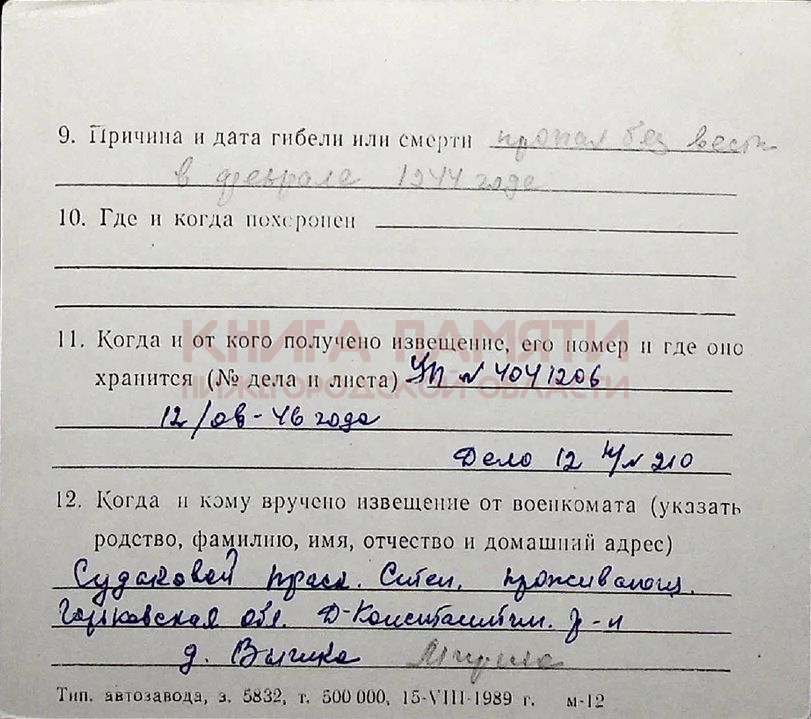 9. Причина и дата гибели или смерти пропал без вести
в феврале 1944 года
10. Где и когда похоронен
КНИГА ПАМЯТИ
НИЖЕГОРОДСКОЙ ОБЛАСТИ
11. Когда и от кого получено извещение, его номер и где оно
хранится (№ дела и листа) УП № 4041206
12/ов-46 года
Дело 12 № 210
12. Когда и кому вручено извещение от военкомата (указать
родство, фамилию, имя, отчество и домашний адрес)
Судаковой Праск. Степ. проживающ.
Горьковская обл. Д-Константин. р-н
д.
Тип. автозавода, з. 5832, т. 500 000, 15-VIII-1989 г. м-12